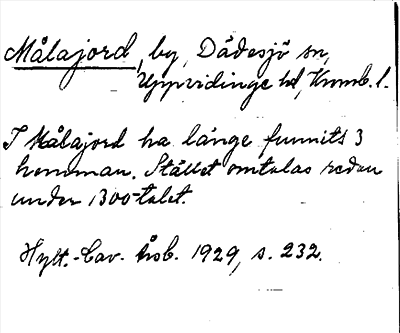 Målajord, by, Dädesjö sn,
Uppvidinge hd, Kronob. l.
I Målajord ha länge funnits 3
hemman. Stället omtalas redan
under 1300-talet.
Hylt.-Cav. årsb. 1929, s. 232.